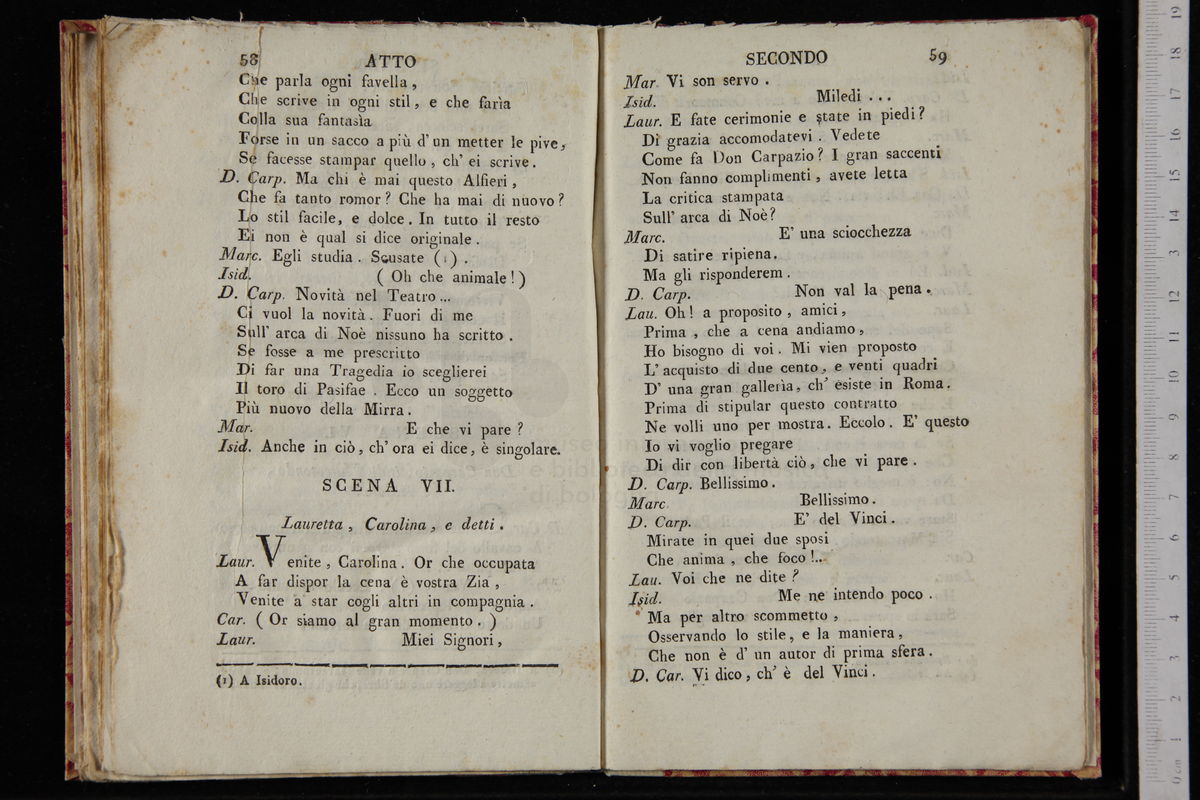 58 ATTO
Che parla ogni favella,
Che scrive in ogni stil, e che farìa
Colla sua fantasìa
Forse in un sacco a più d'un metter le pive,
Se facesse stampar quello, ch'ei scrive.
D. Carp. Ma chi è mai questo Alfieri,
Che fa tanto romor? Che ha mai di nuovo?
Lo stil facile, e dolce. In tutto il resto
Ei non è qual si dice originale.
Marc. Egli studia. Scusate (1).
Isid. (Oh che animale!)
D. Carp. Novità nel Teatro...
Ci vuol la novità. Fuori di me
Sull'arca di Noè nissuno ha scritto.
Se fosse a me prescritto
Di far una Tragedia io sceglierei
Il toro di Pasifae. Ecco un soggetto
Più nuovo della Mirra.
Mar. E che vi pare?
Isid. Anche in ciò, ch'ora ei dice, è singolare.
SCENA VII.
Lauretta, Carolina, e detti.
Laur. Venite, Carolina. Or che occupata
A far dispor la cena è vostra Zia,
Venite a star cogli altri in compagnia.
Car. (Or siamo al gran momento.)
Laur. Miei Signori,
(1) A Isidoro.
SECONDO 59
Mar. Vi son servo.
Isid. Miledi...
Laur. E fate cerimonie e state in piedi?
Di grazia accomodatevi. Vedete
Come fa Don Carpazio? I gran saccenti
Non fanno complimenti, avete letta
La critica stampata
Sull'arca di Noè?
Marc. E' una sciocchezza
Di satire ripiena.
Ma gli risponderem.
D. Carp. Non val la pena.
Lau. Oh! a proposito, amici,
Prima, che a cena andiamo,
Ho bisogno di voi. Mi vien proposto
L'acquisto di due cento, e venti quadri
D'una gran gallerìa, ch'esiste in Roma.
Prima di stipular questo contratto
Ne volli uno per mostra. Eccolo. E' questo
Io vi voglio pregare
Di dir con libertà ciò, che vi pare.
D. Carp. Bellissimo.
Marc. Bellissimo.
D. Carp. E' del Vinci.
Mirate in quei due sposi
Che anima, che foco!..
Lau. Voi che ne dite?
Isid. Me ne intendo poco.
Ma per altro scommetto,
Osservando lo stile, e la maniera,
Che non è d'un autor di prima sfera.
D. Car. Vi dico, ch'è del Vinci.